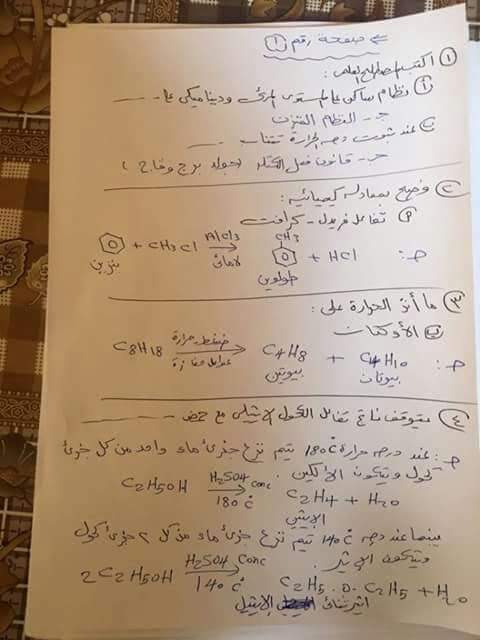 صفحة رقم (١)
(١) اكتب المصطلح العلمى :
(أ) نظام ساكن على المستوى المرئى وديناميكى على ــــ
جـ - النظام المتزن
(ب) عند ثبوت درجة الحرارة تتناسب ــــ
جـ - قانون فعل الكتلة (جولد برج وفاج)
(٢) وضح بمعادلة كيميائية :
(أ) تفاعل فريدل - كرافت
CH3
جـ : + CH3Cl AlCl3 → + HCl
بنزين لامائى طولوين
(٣) ما أثر الحرارة على :
(ب) الأوكتان
جـ : C8H18 ضغط وحرارة → C4H8 + C4H10
عوامل حفازة بيوتين بيوتان
(٤) يتوقف ناتج تفاعل الكحول الإيثيلى مع حمض ــــ
جـ : عند درجة حرارة 180°C يتم نزع جزئ ماء واحد من كل جزئ
كحول ويتكون الألكين .
C2H5OH H2SO4 conc → C2H4 + H2O
180°C
الإيثين
بينما عند درجة 140°C يتم نزع جزئ ماء من كل ٢ جزئ كحول
ويتكون الإيثر .
2C2H5OH H2SO4 Conc → C2H5.O.C2H5 + H2O
140°C
اثير ثنائى الإيثيل